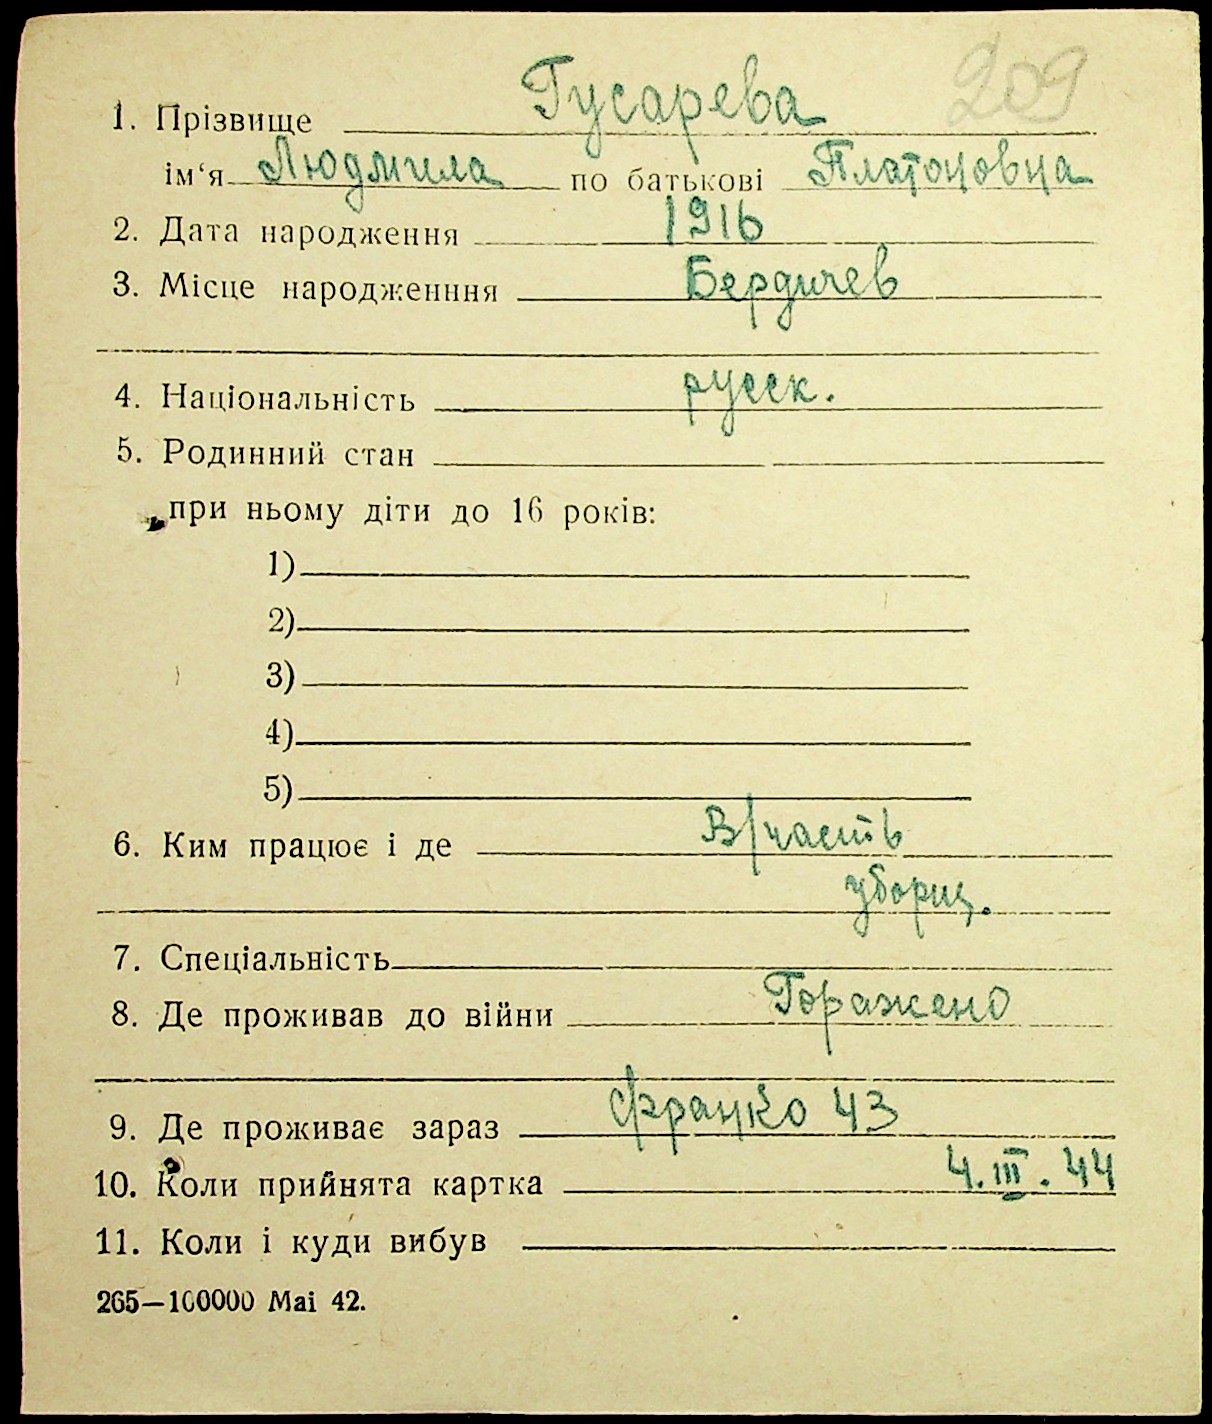 209
1. Прізвище Гусарева
ім‘я Людмила по батькові Платоновна
2. Дата народження 1916
3. Місце народженння Бердичев
4. Національність русск.
5. Родинний стан
при ньому діти до 16 років:
1)
2)
3)
4)
5)
6. Ким працює і де В/часть
уборщ.
7. Спеціальність
8. Де проживав до війни Торажено
9. Де проживає зараз Франко 43
10. Коли прийнята картка 4.III.44
11. Коли і куди вибув
265—100000 Mai 42.